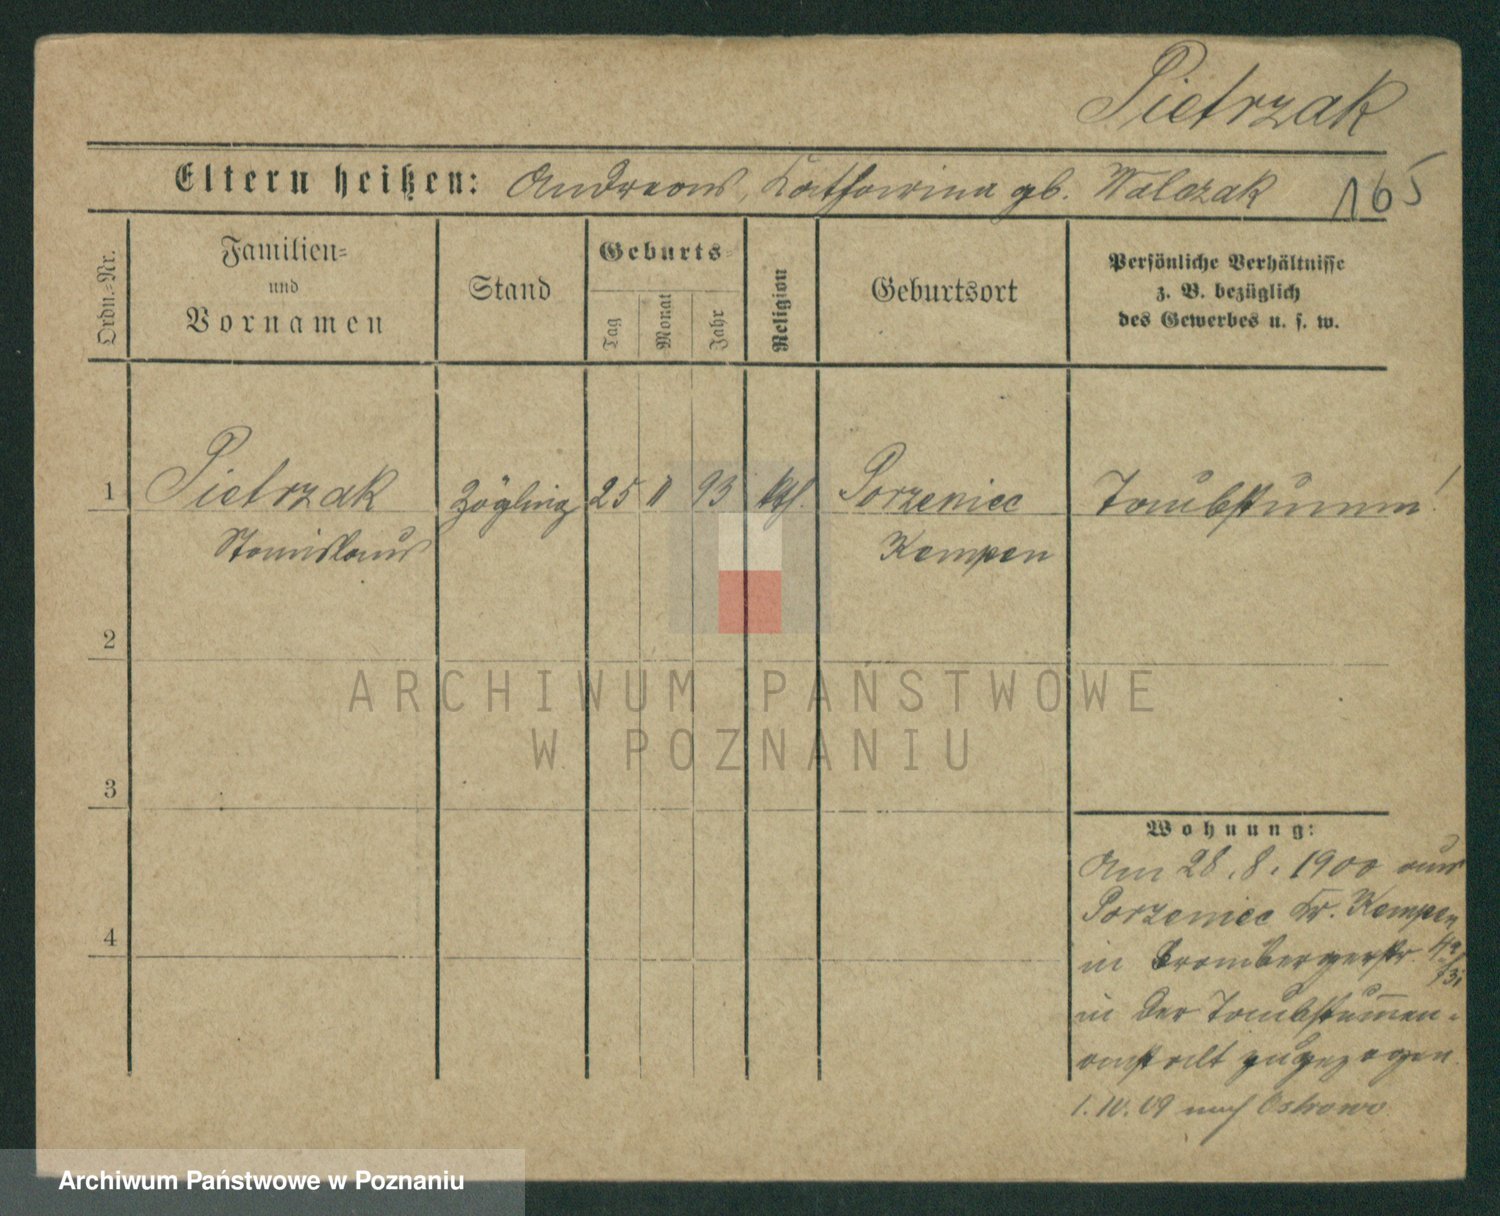 Pietrzak
Eltern heißen: Andreas, Katharina gb. Walczak 165
Ordn.-Nr.
Familien-
und
Vornamen
Stand
Geburts-
Tag
Monat
Jahr
Religion
Geburtsort
Persönliche Verhältnisse
z. B. bezüglich
des Gewerbes u. s. w.
1 Pietrzak Zögling 25 11 93 kth. Porzeniec Taubstumm!
Stanislaus Kempen
2
3
4
Wohnung:
Am 28.8.1900 aus
Porzeniec Kr. Kempen
in Brombergerstr.
in der Taubstummen-
anstalt zugezogen.
1.10.09 nach Ostrowo
ARCHIWUM PAŃSTWOWE
W POZNANIU
Archiwum Państwowe w Poznaniu